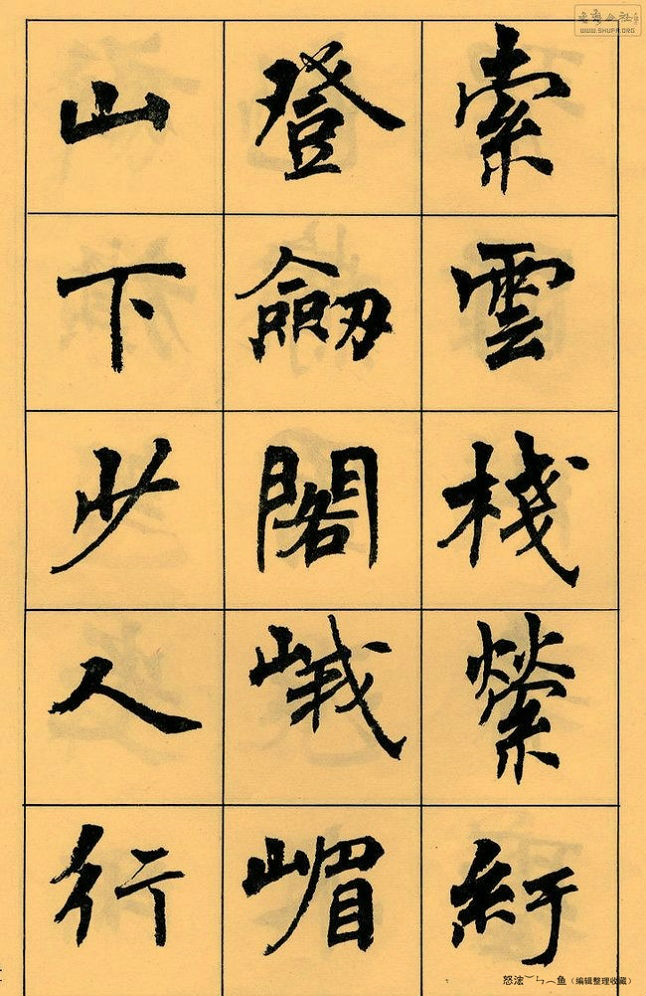 索雲棧縈紆
登劒閣峨嵋
山下少人行
WWW.SHUFA.ORG
鱼（编辑整理收藏）